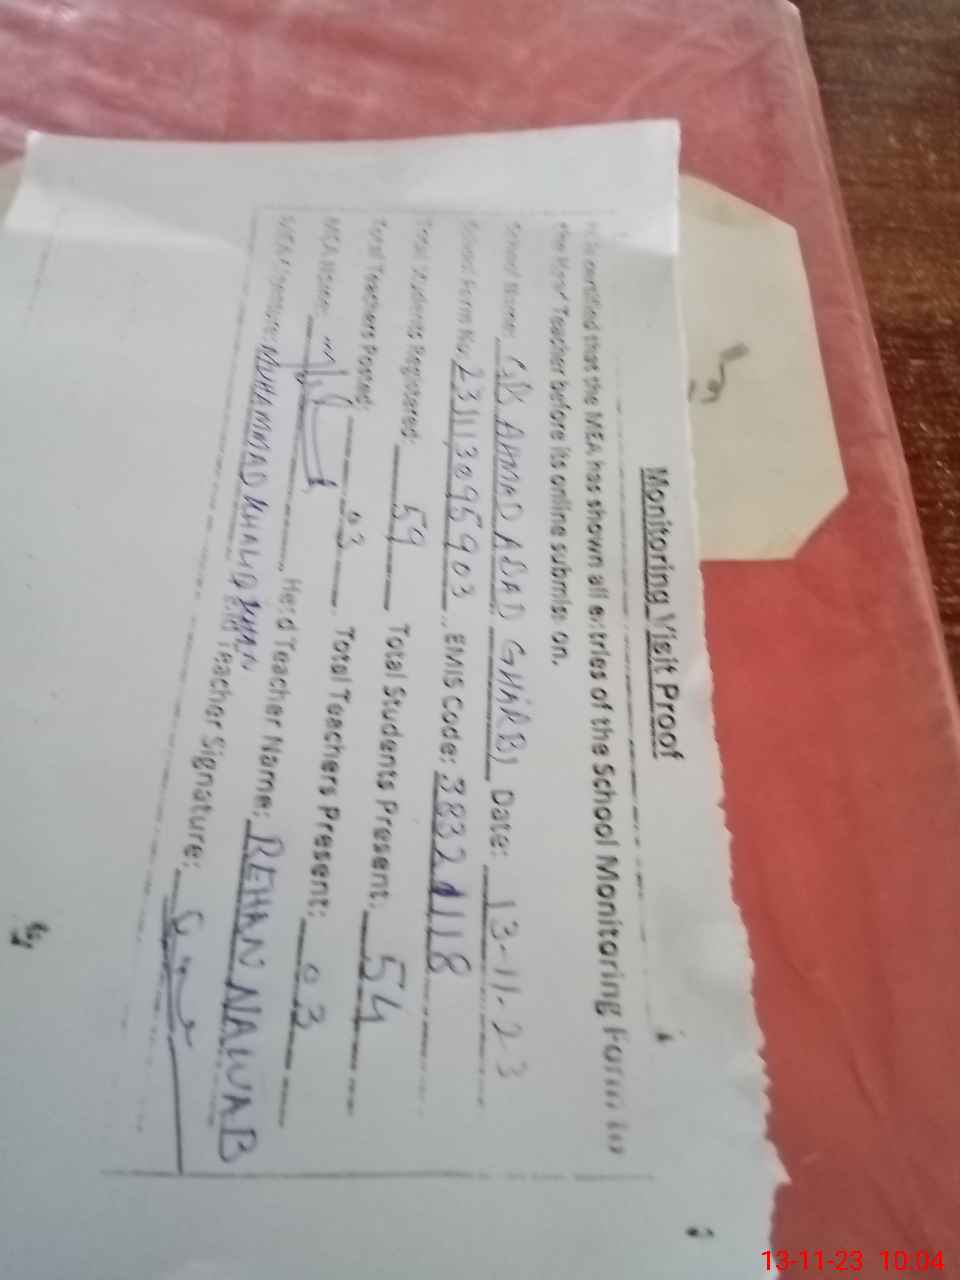 Monitoring Visit Proof
certified that the MEA has shown all entries of the School Monitoring Form to
the Head Teacher before its online submission.
School Name: GB AHMAD ABAD GHARBI Date: 13-11-23
School Form No. 23111309 5903 EMIS Code: 38321118
Total Students Registered: 59 Total Students Present: 54
Total Teachers Posted: 03 Total Teachers Present: 03
MEA Name: Head Teacher Name: REHAN NAWAB
MEA Signature: MUHAMMAD KHALID KHAN Head Teacher Signature:
13-11-23 10:04